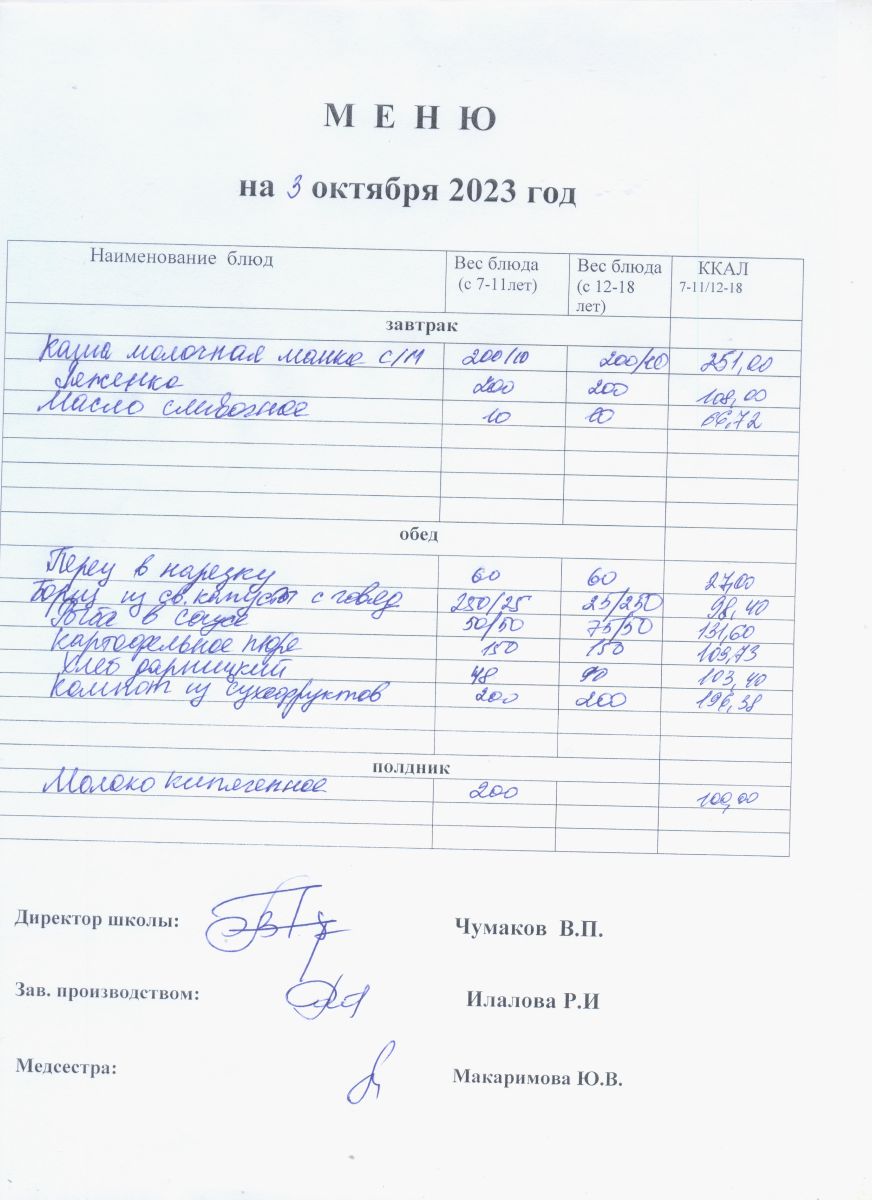 М Е Н Ю
на 3 октября 2023 год
Наименование блюд Вес блюда (с 7-11лет) Вес блюда (с 12-18 лет) ККАЛ 7-11/12-18
завтрак
Каша молочная манка с/м 200/10 200/10 251,00
Ряженка 200 200 108,00
Масло сливочное 10 10 66,72
обед
Перец в нарезку 60 60 27,00
Борщ из св. капусты с говяд 250/25 25/250 98,40
Рыба в соусе 50/50 75/50 131,60
Картофельное пюре 150 150 109,73
Хлеб дарницкий 48 90 103,40
Компот из сухофруктов 200 200 196,38
полдник
Молоко кипяченное 200 100,00
Директор школы: Чумаков В.П.
Зав. производством: Илалова Р.И
Медсестра: Макаримова Ю.В.